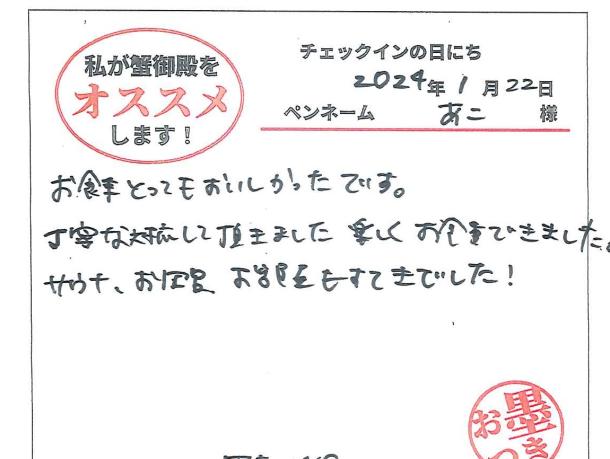 私が蟹御殿を
オススメ
します！
チェックインの日にち
2024年 1月 22日
ペンネーム あこ 様
お食事とってもおいしかったです。
丁寧な対応して頂きました 楽しく お食事できました。
サウナ、お風呂 お部屋もすてきでした！
お墨
つき